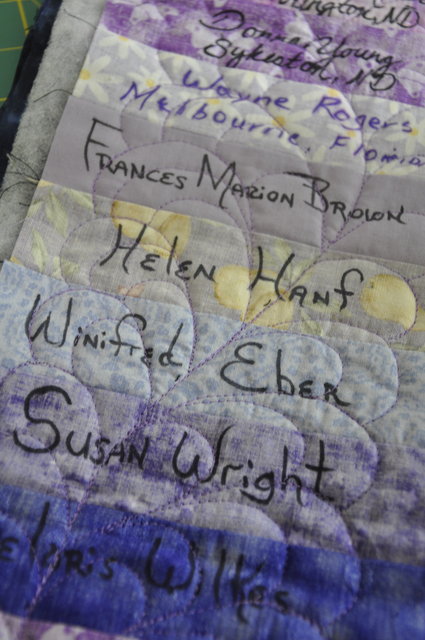 ND
Donna Young
Sykeston, ND
Wayne Rogers
Melbourne, Florida
Frances Marion Brown
Helen Hanf
Winifred Eber
Susan Wright
Wilkes